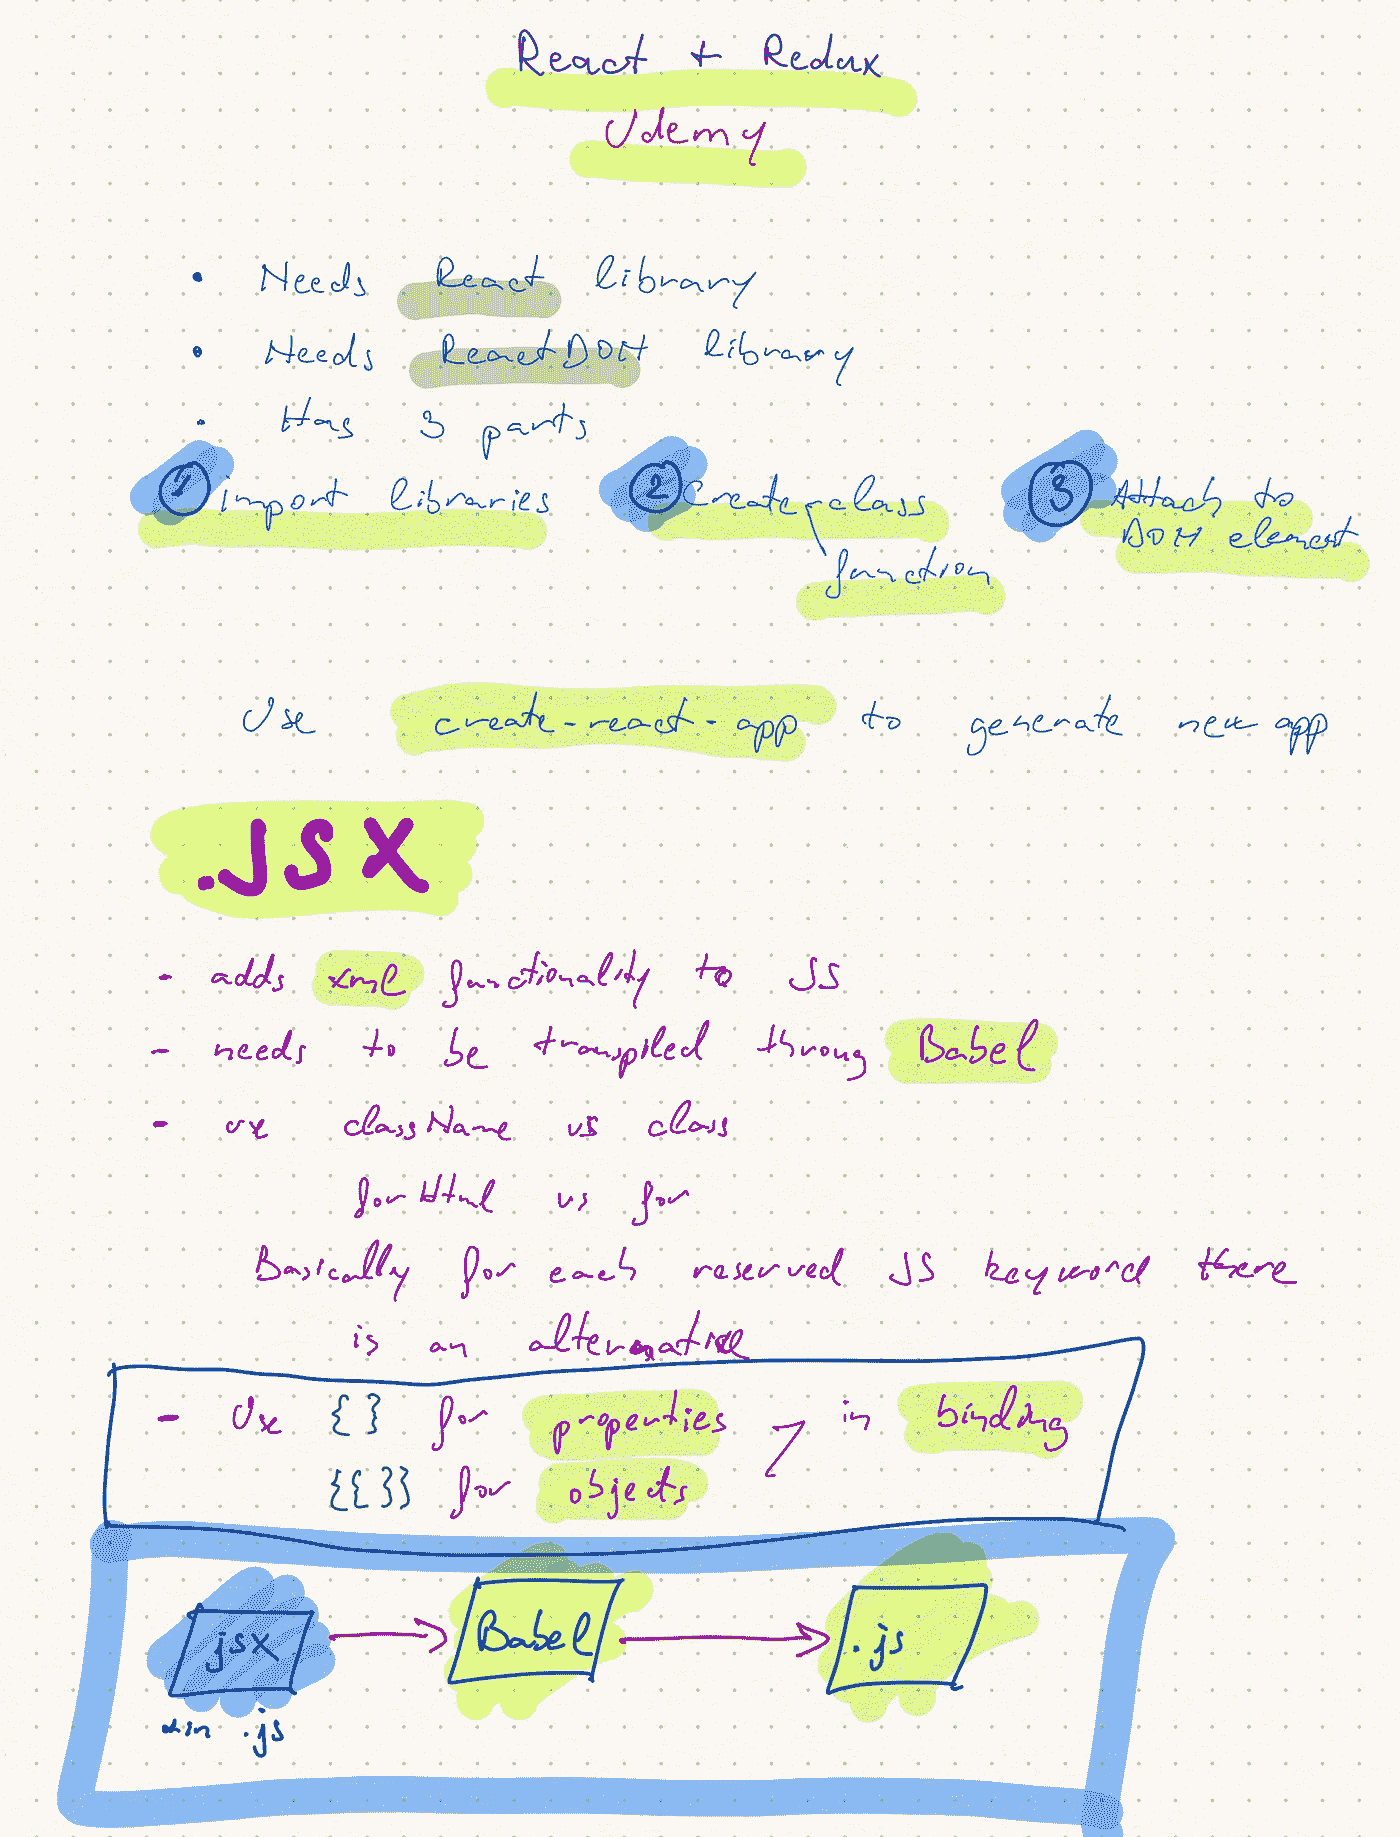 React + Redux
Udemy
• Needs React library
• Needs ReactDOM library
• Has 3 parts
1 import libraries
2 Create class
function
3 Attach to
DOM element
Use create-react-app to generate new app
.JSX
- adds xml functionality to JS
- needs to be transpiled throug Babel
- use className vs class
forHtml vs for
Basically for each reserved JS keyword there
is an alternative
- Use {} for properties
{{}} for objects
in binding
jsx
Babel
.js
.js